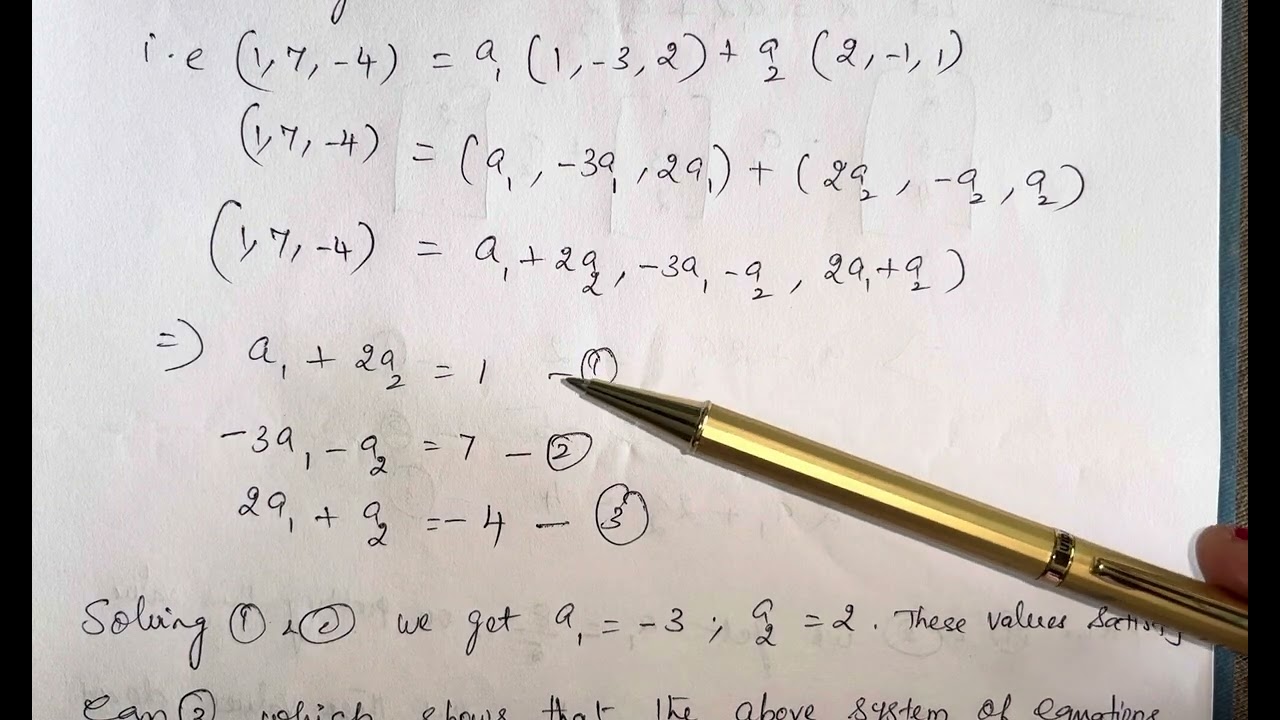 i.e (1,7,-4) = a₁ (1,-3,2) + a₂ (2,-1,1)
(1,7,-4) = (a₁, -3a₁, 2a₁) + (2a₂, -a₂, a₂)
(1,7,-4) = a₁+2a₂, -3a₁-a₂, 2a₁+a₂)
=) a₁ + 2a₂ = 1 - ①
-3a₁ - a₂ = 7 - ②
2a₁ + a₂ = -4 - ③
Solving ① & ② we get a₁ = -3 ; a₂ = 2. These values satisfy
Eqn ③ which shows that the above system of equations